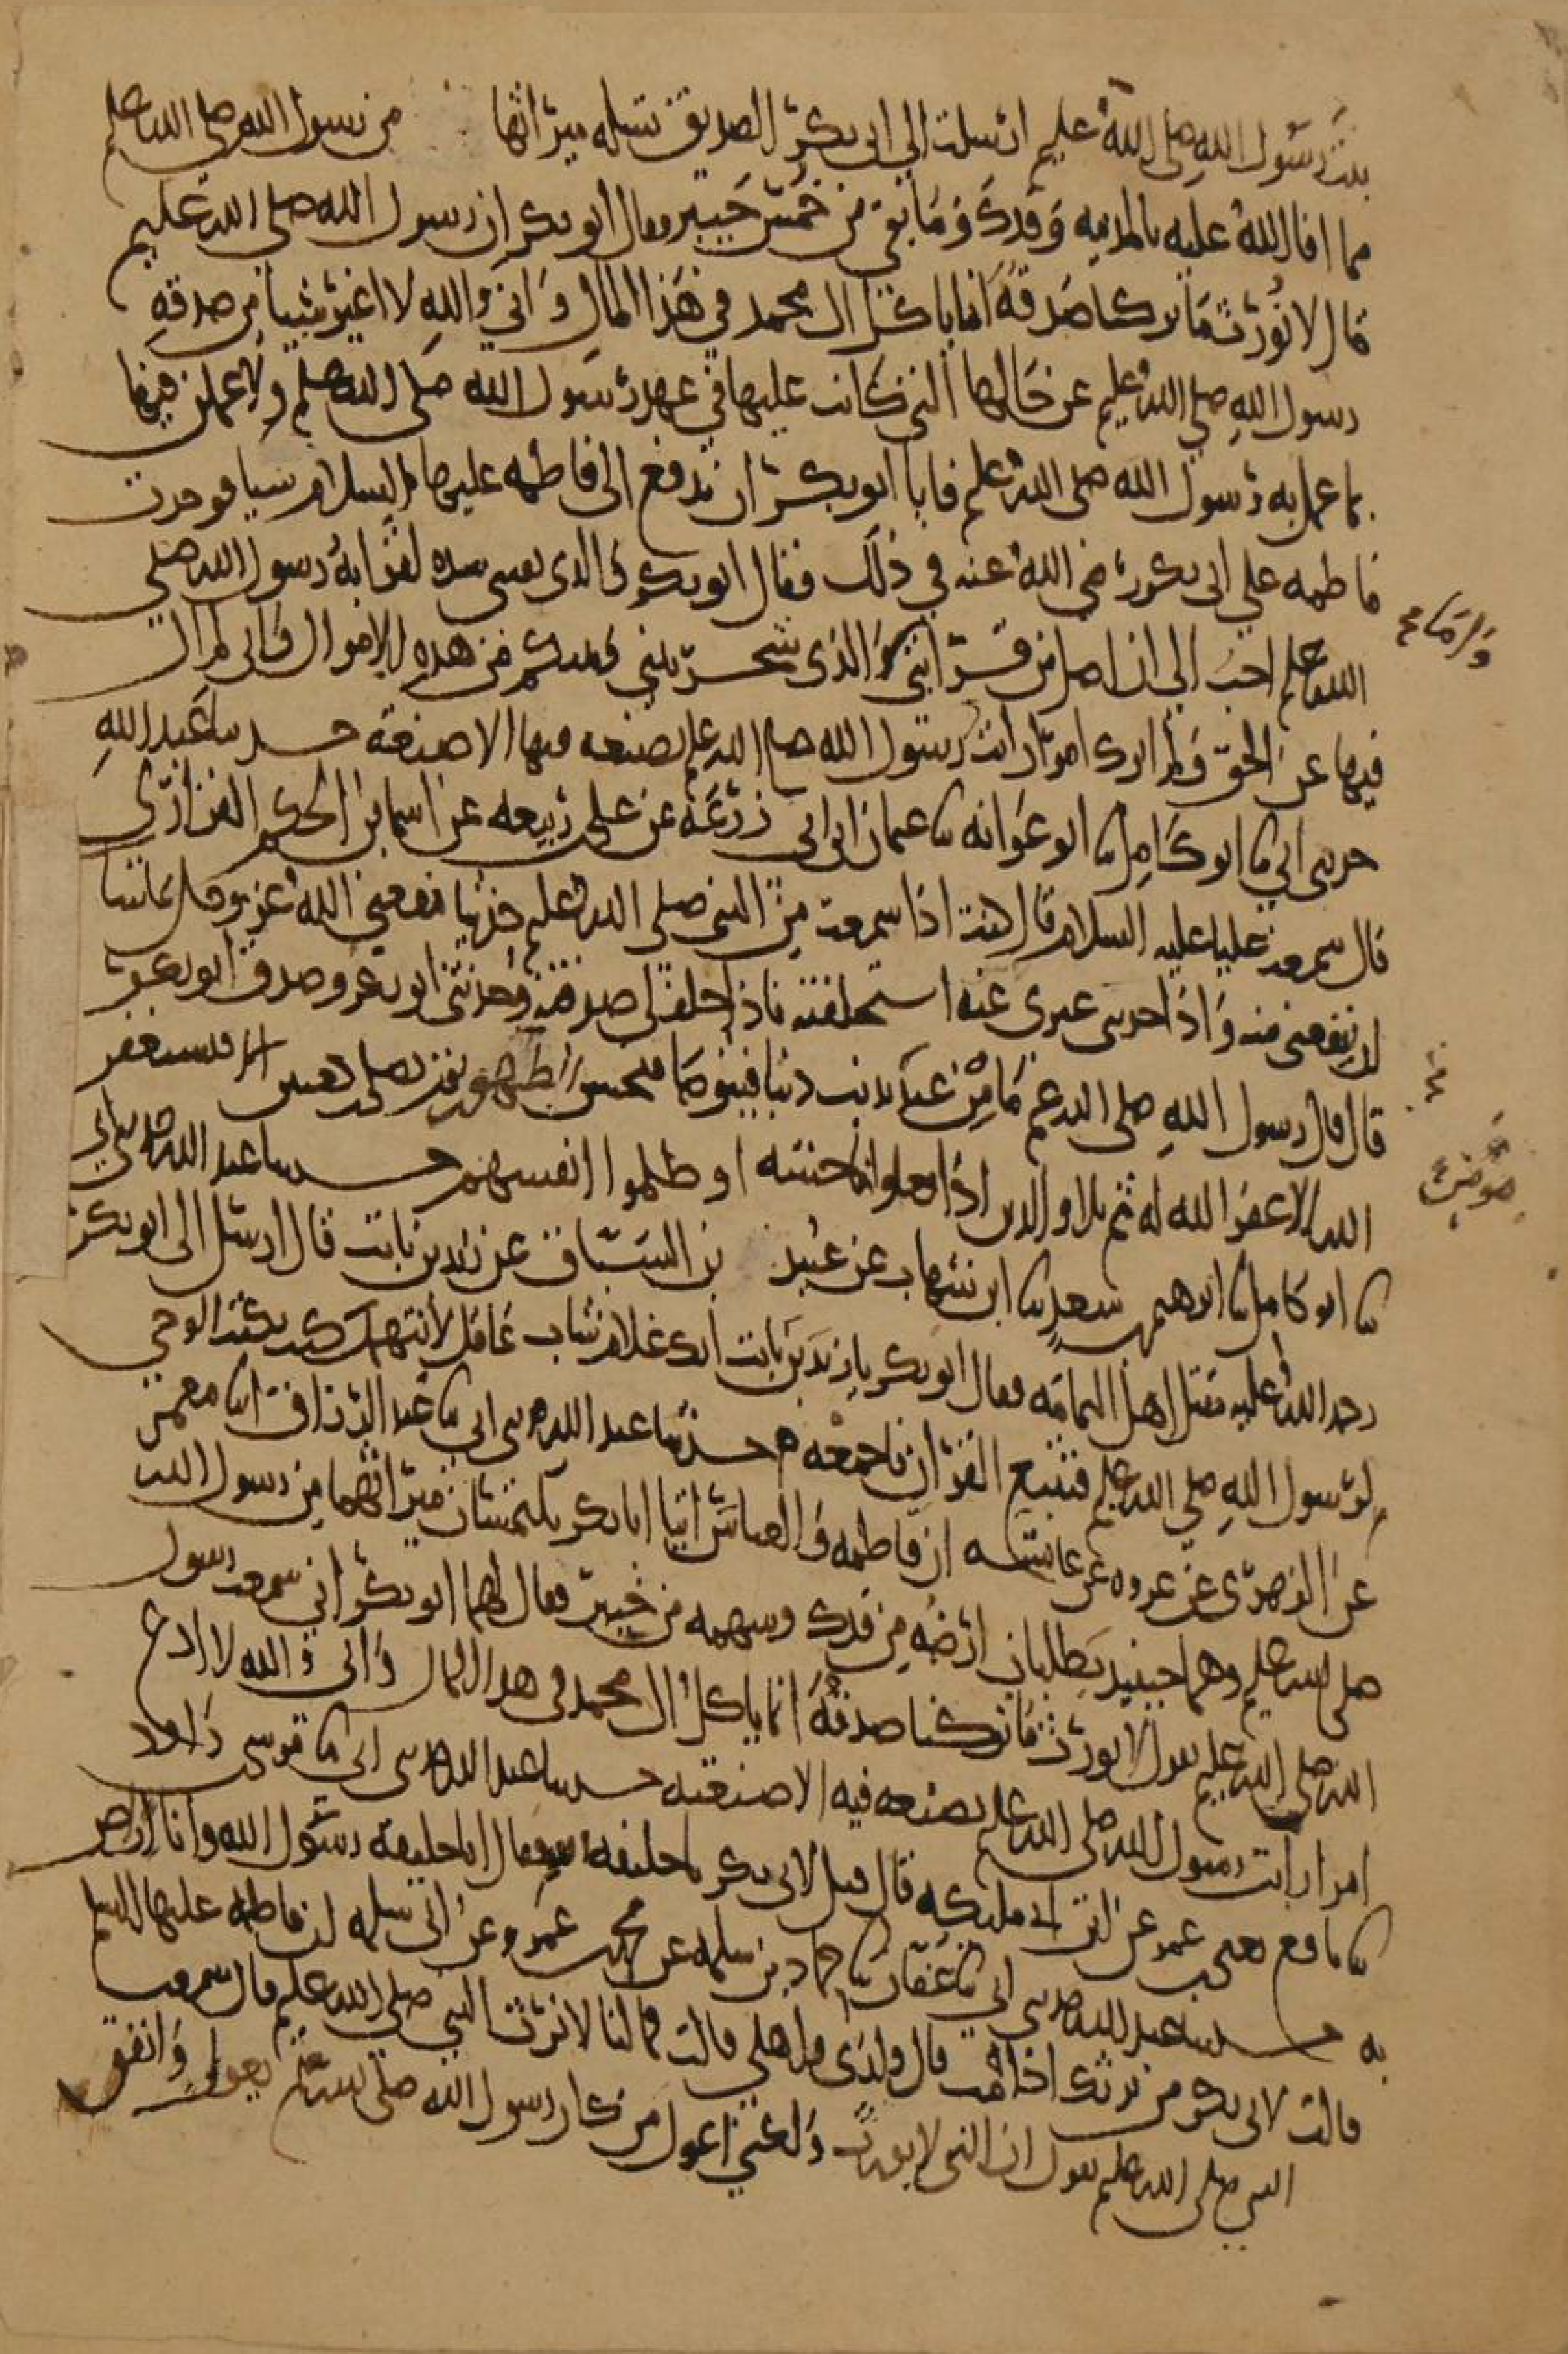 بنت رسول الله صلى الله عليه وسلم ارسلت الى ابى بكر الصديق تسله ميراثها من رسول الله صلى الله عليه وسلم
مما افا الله عليه بالمدينه وفدك وما بقي من خمس خيبر فقال ابو بكر ان رسول الله صلى الله عليه وسلم
قال لا نورث ما تركنا صدقة انما ياكل ال محمد في هذا المال واني والله لا اغير شيئا من صدقة
رسول الله صلى الله عليه وسلم عن حالها التي كانت عليها في عهد رسول الله صلى الله عليه وسلم ولاعملن فيها
بما عمل به رسول الله صلى الله عليه وسلم فابا ابو بكر ان يدفع الى فاطمه عليها السلام شيا فوجدت
فاطمه علي ابى بكر رضي الله عنه في ذلك فقال ابو بكر والذى نفسى بيده لقرابة رسول الله صلى
الله عليه وسلم احب الي ان اصل من قرابتي واما الذى شجر بيني وبينكم من هذه الاموال فانى لم ال
فيها عن الحق ولم اترك امرا رايت رسول الله صلى الله عليه وسلم يصنعه فيها الا صنعته حدثنا عبد الله
حدثنى ابي ثنا ابو كامل ثنا ابو عوانه ثنا عثمان ابن ابى زرعة عن على بن ربيعه عن اسما بن الحكم الفزاري
قال سمعت عليا عليه السلام قال كنت اذا سمعت من النبى صلى الله عليه وسلم حديثا نفعني الله عز وجل بما شا
ان ينفعنى منه واذا حدثنى غيرى عنه استحلفته فاذا حلف لى صدقته وحدثنى ابو بكر وصدق ابو بكر
قال قال رسول الله صلى الله عليه وسلم ما من عبد يذنب ذنبا فيتوضا فيحسن الطهور ثم يصلى ركعتين فيستغفر
الله الا غفر الله له ثم تلا والذين اذا فعلوا فاحشه او ظلموا انفسهم حدثنا عبد الله حدثنى ابي
ثنا ابو كامل ثنا ابرهيم بن سعد ثنا ابن شهاب عن عبيد بن السباق عن زيد بن ثابت قال ارسل الى ابو بكر
رحمه الله عليه مقتل اهل اليمامه فقال ابو بكر يا زيد بن ثابت انك غلام شاب عاقل لا نتهمك قد كنت تكتب الوحي
لرسول الله صلى الله عليه وسلم فتتبع القران فاجمعه حدثنا عبد الله حدثنى ابي ثنا عبد الرزاق انا معمر
عن الزهرى عن عروه عن عائشه ان فاطمه والعباس اتيا ابا بكر يلتمسان ميراثهما من رسول الله
صلى الله عليه وسلم وهما حينيذ يطلبان ارضه من فدك وسهمه من خيبر فقال لهما ابو بكر اني سمعت رسول
الله صلى الله عليه وسلم يقول لا نورث ما تركنا صدقة انما ياكل ال محمد فى هذا المال وانى والله لا ادع
امرا رايت رسول الله صلى الله عليه وسلم يصنعه فيه الا صنعته حدثنا عبد الله حدثنى ابى ثنا موسى بن داود
ثنا نافع يعنى بن عمر عن ابن ابى مليكه قال قيل لابى بكر يا خليفة الله فقال انا خليفة رسول الله وانا ارضى
به حدثنا عبد الله حدثنى ابي ثنا عفان ثنا حماد بن سلمه عن محمد بن عمرو عن ابى سلمه ان فاطمة عليها السلم
قالت لابى بكر من يرثك اذا مت قال ولدى واهلي قالت فما لنا لا نرث النبي صلى الله عليه وسلم قال سمعت
النبى صلى الله عليه وسلم يقول ان النبى لا يورث ولكني اعول من كان رسول الله صلى الله عليه وسلم يعول وانفق